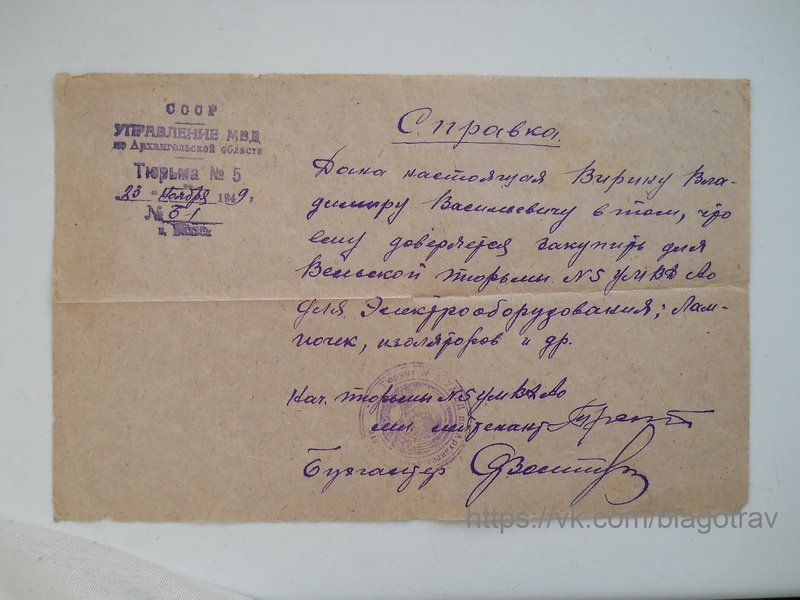 СССР
УПРАВЛЕНИЕ МВД
по Архангельской области
Тюрьма № 5
23 " Ноября 1949 г.
№ 51
Справка.
Дана настоящая Вирину Вла-
димиру Васильевичу в том, что
ему доверяется закупить для
Вельской тюрьмы N5 УМВД АО
для Электрооборудования; Лам-
почек, изоляторов и др.
Нач. тюрьмы N5 УМВД АО
мл. лейтенант
Бухгалтер
https://vk.com/blagotrav